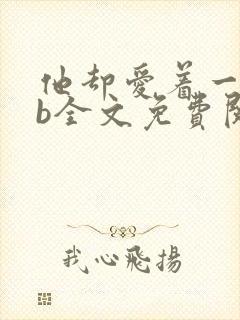 他却愛着一
b全文免費閱
我心飛揚